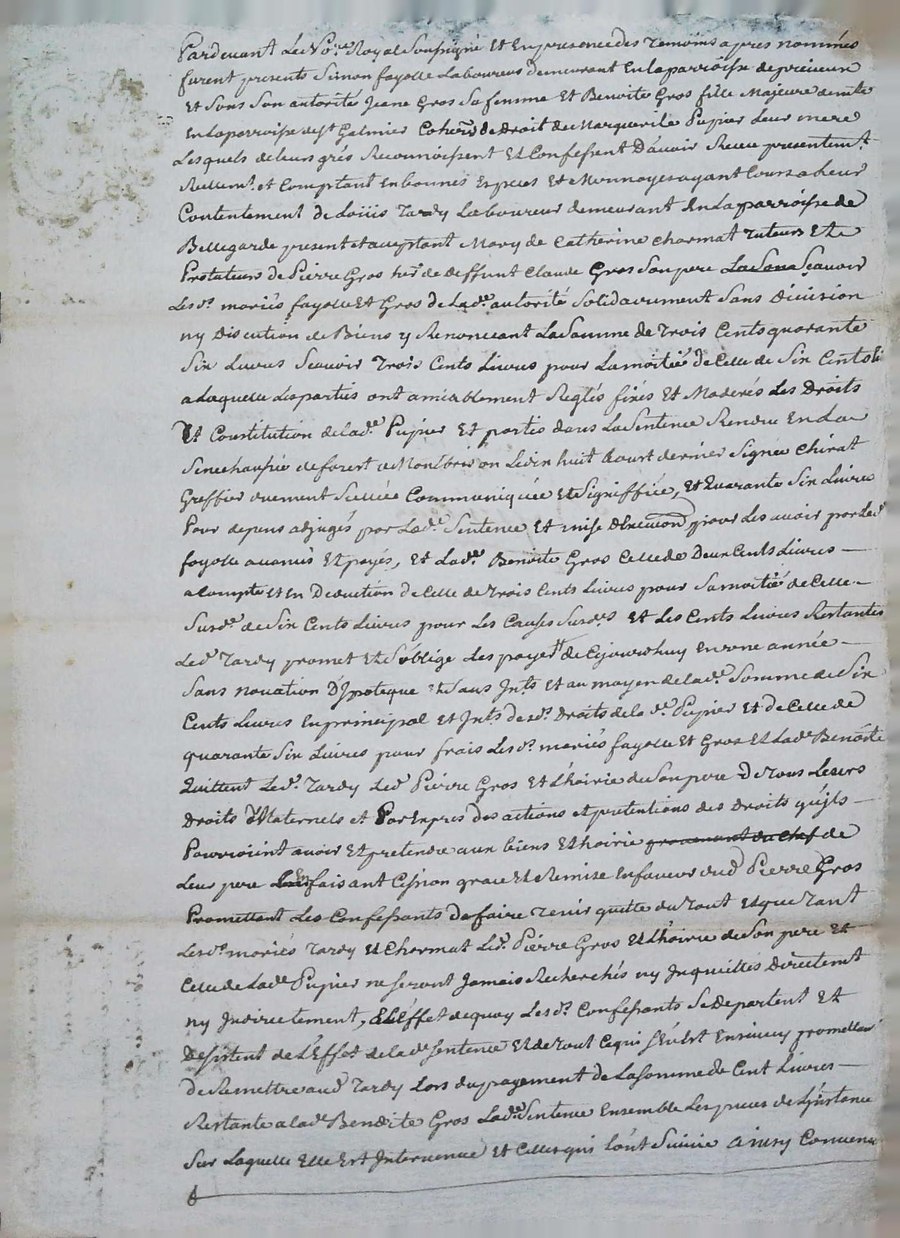 Pardevant Le No.re Royal Soussigné Et En presence des Temoins apres nommés
furent presents Simon fayolle Laboureur demeurant En la parroisse de
Et Sous Son autorité Jeane Gros Sa femme Et Benoite Gros fille Majeure
En la parroisse de St Galmier Coher.s de Droit de Marguerite Pupier Leur mere
Lesquels de leurs grés Reconnoissent Et Confessent D'avoir Receu presentem.t
Reellem.t et Comptant En bonnes Especes Et Monnoyes ayant Cours a leur
Contentement de Loüis Tardy Laboureur demeurant En La parroisse de
Bellegarde present et acceptant Mary de Catherine Charmat Tuteurs Et
Protuteur de Pierre Gros her. de deffunt Claude Gros Son pere Sçavoir
Les d.s mariés fayolle Et Gros de Lad.e autorité Solidairement Sans Division
ny Discution de Biens y Renonceant La Somme de Trois Cents quarante
Six Livres Scavoir Trois Cents Livres pour La moitié de Celle de Six Cents Li
a Laquelle Les parties ont amiablement Reglés fixés Et Moderés Les Droits
Et Constitution de lad.e Pupier Et portés dans La Sentence Rendue En La
Senechaussée de forest a Montbrison Le dix huit Aoust dernier Signée Chirat
Greffier duement Scellée Communiquée Et Signiffiée, Et Quarante Six Livres
Pour depens adjugés par Lad.e Sentence Et mise D'Execution pour Les avoir par Led.
fayolle avancés Et payés, Et Lad.e Benoite Gros Celle de Deux Cents Livres —
a Compte Et En Deduction de Celle de Trois Cents Livres pour Sa moitié de Celle —
Susd.e de Six Cents Livres pour Les Causes Susd.s Et Les Cents Livres Restantes
Led. Tardy promet Et S'oblige Les payer de Cejourdhuy En une année —
Sans novation D'Ipoteque Et Sans Ints Et au moyen de Lad.e Somme de Six
Cents Livres En principal et Ints des d. Droits de la d.e Pupier Et de Celle de
quarante Six Livres pour frais Les d.s mariés fayolle Et Gros Et Lad.e Benoite
Quittent Led. Tardy Led. Pierre Gros Et L'hoirie de Son pere De Tous Leurs
Droits Maternels et Par Exprés Des actions et pretentions des Droits qu'jls —
Pourroient avoir Et pretendre aux biens Et hoirie provenant du Chef de
Leur pere faisant Cession grace Et Remise En faveur dud Pierre Gros
Promettant Les Confessants De faire Tenir quitte du Tout Et que Tant
Les d.s mariés Tardy Et Charmat Led. Pierre Gros Et L'hoirie de Son pere Et
Celle de Lad.e Pupier ne Seront Jamais Recherchés ny Inquiettés Directemt
ny Indirectement, Et L'Effet de quoy Les d.s Confessants Se Departent Et
Desistent de L'Effet de la d.e Sentence Et de Tout Ce qui S'en Est Ensuivy promettent
de Remettre aud Tardy Lors du payement de La Somme de Cent Livres —
Restante a lad. Benoite Gros Lad.e Sentence Ensemble Les pieces de L'jnstance
Sur Laquelle Elle Est Intervenue Et Celles qui L'ont Suivie Ainsy Convenu